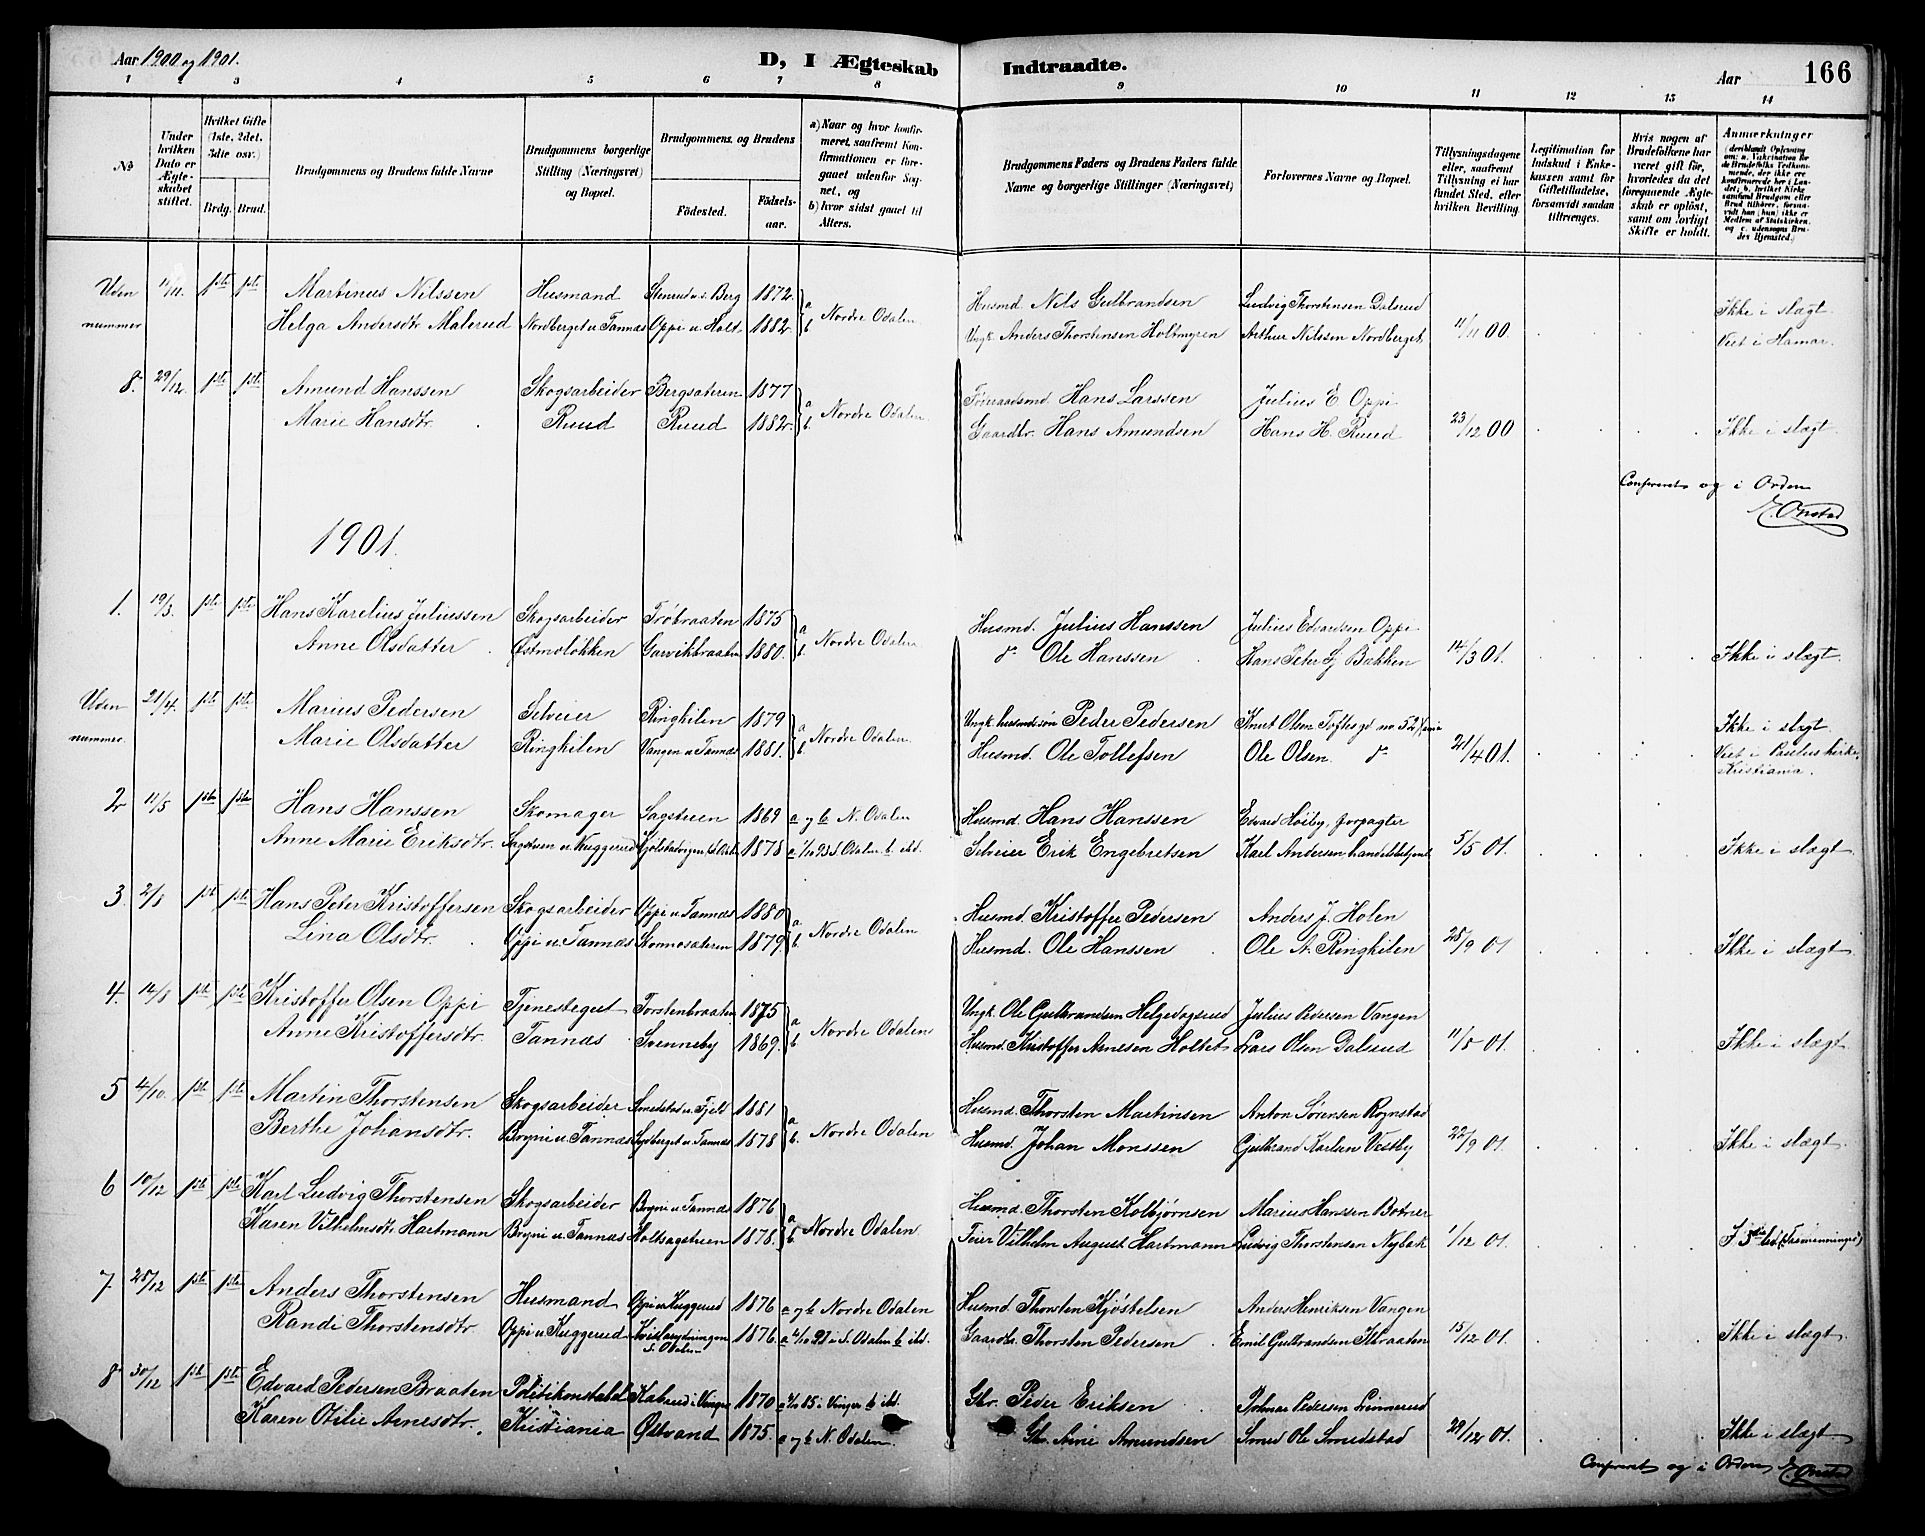 Aar 1900 og 1901.
D, I Ægteskab Indtraadte.
Aar 166
1 2 3 4 5 6 7 8 9 10 11 12 13 14
No
Under hvilken Dato er Ægteskabet stiftet.
Hvilket Gifte (1ste, 2det, 3die osv.)
Brdg. Brud.
Brudgommens og Brudens fulde Navne
Brudgommens borgerlige Stilling (Næringsvei) og Bopæl.
Brudgommens og Brudens
Fødested. Fødselsaar.
a) Naar og hvor konfirmeret, saafremt Konfirmationen er foregaaet udenfor Sognet, og
b) hvor sidst gaaet til Alters.
Brudgommens Faders og Brudens Faders fulde Navne og borgerlige Stillinger (Næringsvei)
Forlovernes Navne og Bopæl.
Tillysningsdagene eller, saafremt Tillysning ei har fundet Sted, efter hvilken Bevilling.
Legitimation for Indskud i Enkekassen samt for Giftetilladelse, forsaavidt saadan tiltrænges.
Hvis nogen af Brudefolkene har været gift før, hvorledes da det foregaaende Ægteskab er opløst, samt om lovligt Skifte er holdt.
Anmærkninger
Uden nummer 11/11. 1ste 1ste Martinus Nilssen Husmand Stenrud u. s. Berg 1872. a Nordre Odalen Husmd. Nils Gulbrandsen Ludvig Thorstensen Dalsrud Ikke i slægt.
Helga Andersdtr. Malerud Nordberget u. Tannæs Oppi u. Holt. 1882 b Ungk. Anders Thorstensen Holtmyren Arthur Nilssen Nordberget. 11/11 00 Viet i Hamar.
8. 29/12. 1ste 1ste Amund Hanssen Skogsarbeider Bergsæteren 1877 a Nordre Odalen Føderaadsmd. Hans Larssen Julius E. Oppi
Marie Hansdtr. Ruud Ruud 1882 b Gaardbr. Hans Amundsen Hans H. Ruud 23/12 00 Ikke i slægt.
Confereret og i Orden
E. Onstad
1901.
1. 19/3. 1ste 1ste Hans Karelius Juliussen Skogsarbeider Trøbraaten 1875 a Nordre Odalen Husmd. Julius Hanssen Julius Edvardsen Oppi
Anne Olsdatter Østmoløkken Garvikbraaten 1880. b do Ole Hanssen Hans Peter Bakken 14/3 01. Ikke i slægt.
Uden nummer. 21/4. 1ste 1ste Marius Pedersen Selveier Ringhilen 1879 a Nordre Odalen Ungk. husmdssøn Peder Pedersen Knut Olsen no 52 Ikke i slægt
Marie Olsdatter Ringhilen Vangen u. Tannæs 1881. b Husmd. Ole Tollefsen Ole Olsen do 21/4 01. Viet i Paulus kirke, Kristiania.
2 11/5 1ste 1ste Hans Hanssen Skomager Sagstuen 1869 a og b N. Odalen Husmd. Hans Hanssen Edvard Høiby, forpagter
Anne Marie Eriksdtr. Sagstuen u. Kuggerud 1878 a 1/10 93 S. Odalen b ibd. Selveier Erik Engebretsen Karl Andersen handelsbetjent 5/5 01. Ikke i slægt.
3. 2/8 1ste 1ste Hans Peter Kristoffersen Skogsarbeider Oppi u. Tannæs 1880 a Nordre Odalen Husmd. Kristoffer Pedersen Anders J. Holen
Lina Olsdtr. Oppi u. Tannæs 1879. b Husmd. Ole Hanssen Ole A. Ringhilen 25/9 01 Ikke i slægt
4. 14/8 1ste 1ste Kristoffer Olsen Oppi Tjenestegut Torstenbraaten 1875 a Nordre Odalen Ungk. Ole Gulbrandsen Helgedagsrud Julius Pedersen Vangen
Anne Kristoffersdtr. Tannæs Svenneby 1869. b Husmd. Kristoffer Arnesen Holtet Lars Olsen Dalsrud 11/8 01. Ikke i slægt.
5 4/10. 1ste 1ste Martin Thorstensen Skogsarbeider Smedstad u. Fjeld 1881 a Nordre Odalen Husmd. Thorsten Martinsen Anton Sørensen Rognstad
Berthe Johansdtr. Brynie u. Tannæs Sydberget u. Tannæs 1878 b Husmd. Johan Monssen Gulbrand Karlsen Vestby 22/9 01. Ikke i slægt.
6 10/12 1ste 1ste Karl Ludvig Thorstensen Skogsarbeider Brynie u. Tannæs 1876 a Nordre Odalen Husmd. Thorsten Kolbjørnsen Marius Hanssen Botner
Karen Vilhelmsdtr. Hartmann Brynie u. Tannæs Holtsagstuen 1878. b Eier Vilhelm August Hartmann Ludvig Thorstensen Nybak 1/12 01. I 3die Led (Tremenninger)
7. 25/12 1ste 1ste Anders Thorstensen Husmand Oppi u. Kuggerud 1876 a og b Nordre Odalen Husmd. Thorsten Kjøstelsen Anders Henriksen Vangen
Randi Thorstensdtr. Oppi u. Kuggerud S. Odalen 1876. a 4/10 91 i S. Odalen b ibd. Gaardbr. Thorsten Pedersen Emil Gulbrandsen Kbraaten 15/12 01. Ikke i slægt.
8 30/12 1ste 1ste Edvard Pedersen Braaten Politikonstabel Kabrud i Vinger 1870 a 85 i Vinger b ibd. Gbr. Peder Eriksen Pedersen Linnerud
Karen Otilie Arnesdtr. Kristiania Østvand 1875. a og b N. Odalen. Gbr. Arne Amundsen Smed Ole Smedstad 29/12 01. Ikke i slægt.
Confereret og i Orden E. Onstad